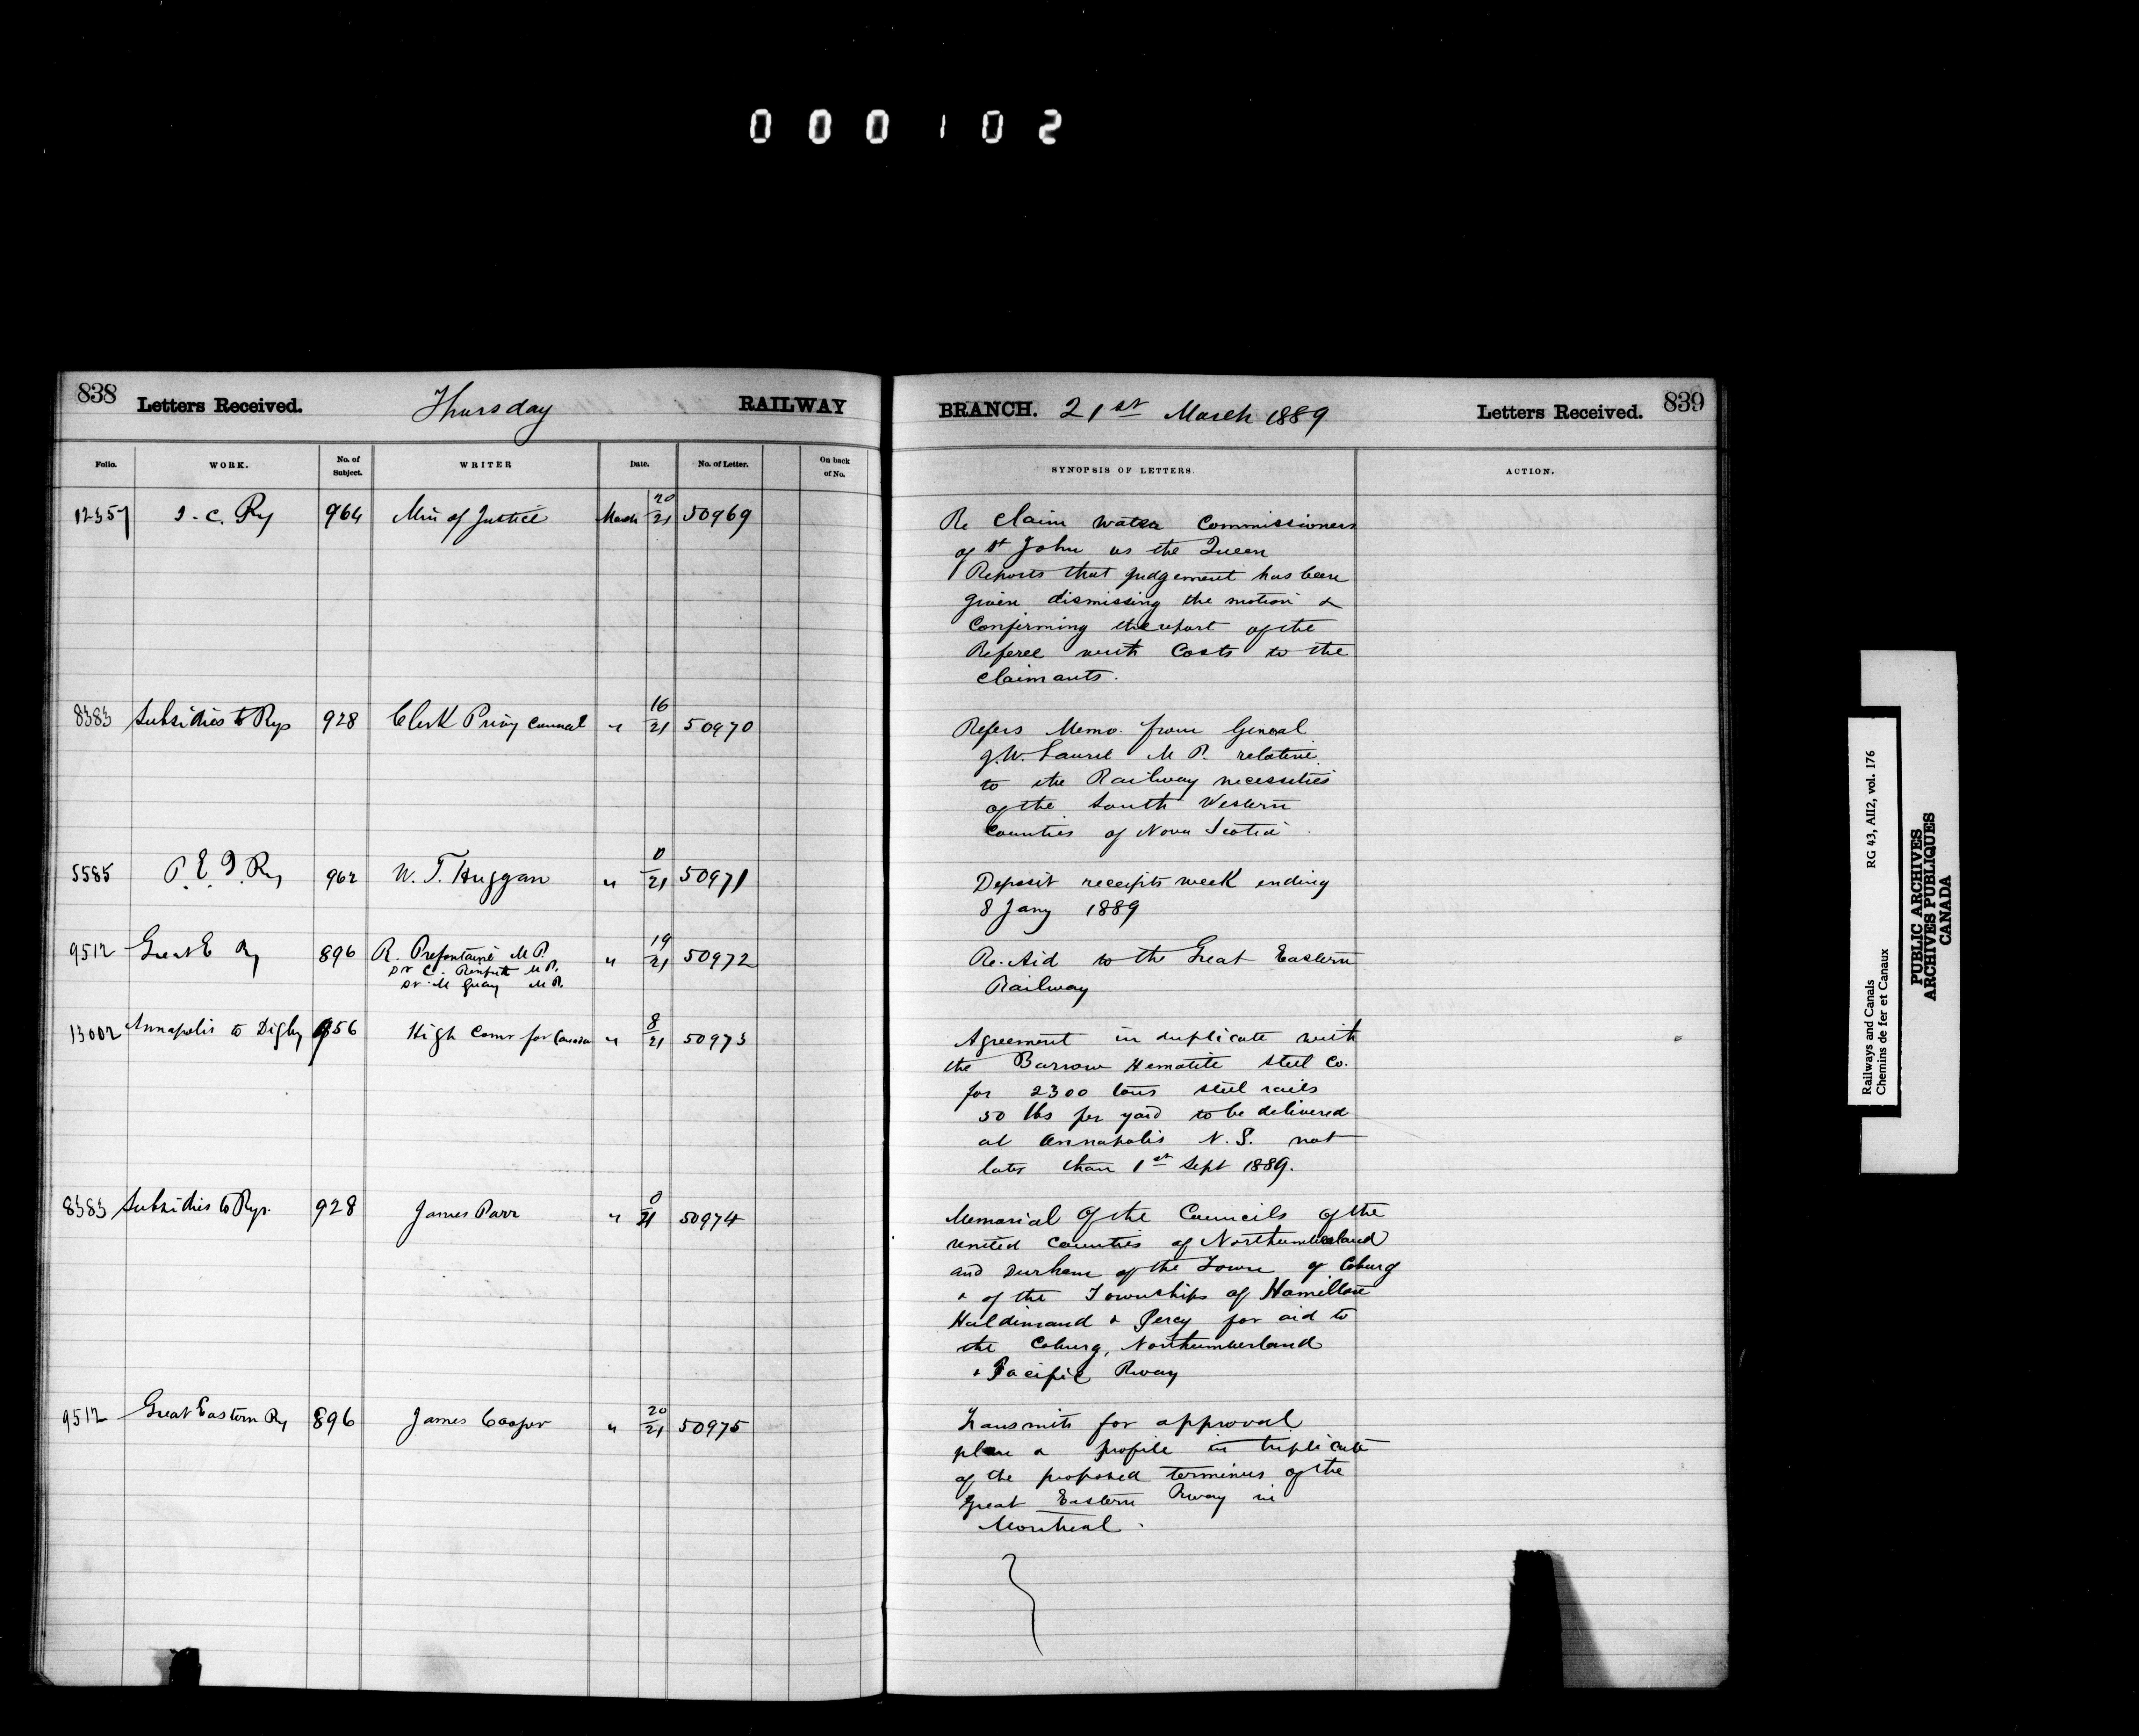 000102
838 Letters Received. Thursday RAILWAY
Folio. WORK. No. of Subject. WRITER Date. No. of Letter. On back of No.
12357 I. C. Ry 964 Min of Justice March 20/21 50969
8383 Subsidies to Rys 928 Clerk Privy Council " 16/21 50970
5585 P. E. I. Ry 962 W. T. Huggan " 0/21 50971
9512 Great E Ry 896 R. Prefontaine M P. " 19/21 50972
Dr C. M P.
Dr M Guay M P.
13002 Annapolis to Digby 956 High Comr for Canada " 8/21 50973
8383 Subsidies to Rys. 928 James Parr " 0/21 50974
9512 Great Eastern Ry 896 James Cooper " 20/21 50975
BRANCH. 21st March 1889 Letters Received. 839
SYNOPSIS OF LETTERS. ACTION.
Re Claim Water Commissioners
of St John vs the Queen
Reports that judgement has been
given dismissing the motion &
Confirming the report of the
Referee with Costs to the
Claimants.
Refers Memo. from General
J. W. Laurie M P. relative
to the Railway necessities
of the South Western
Counties of Nova Scotia
Deposit receipts week ending
8 Jany 1889
Re. Aid to the Great Eastern
Railway
Agreement in duplicate with
the Barrow Hematite Steel Co.
for 2300 tons steel rails
50 lbs per yard to be delivered
at Annapolis N. S. not
later than 1st Sept 1889.
Memorial of the Councils of the
United Counties of Northumberland
and Durham of the Town of Coburg
& of the Townships of Hamilton
Haldimand & Percy for aid to
the Coburg, Northumberland
& Pacific Rway
Transmits for approval
plan & profile in triplicate
of the proposed terminus of the
Great Eastern Rway in
Montreal.
Railways and Canals RG 43, AII2, vol. 176
Chemins de fer et Canaux
PUBLIC ARCHIVES
ARCHIVES PUBLIQUES
CANADA